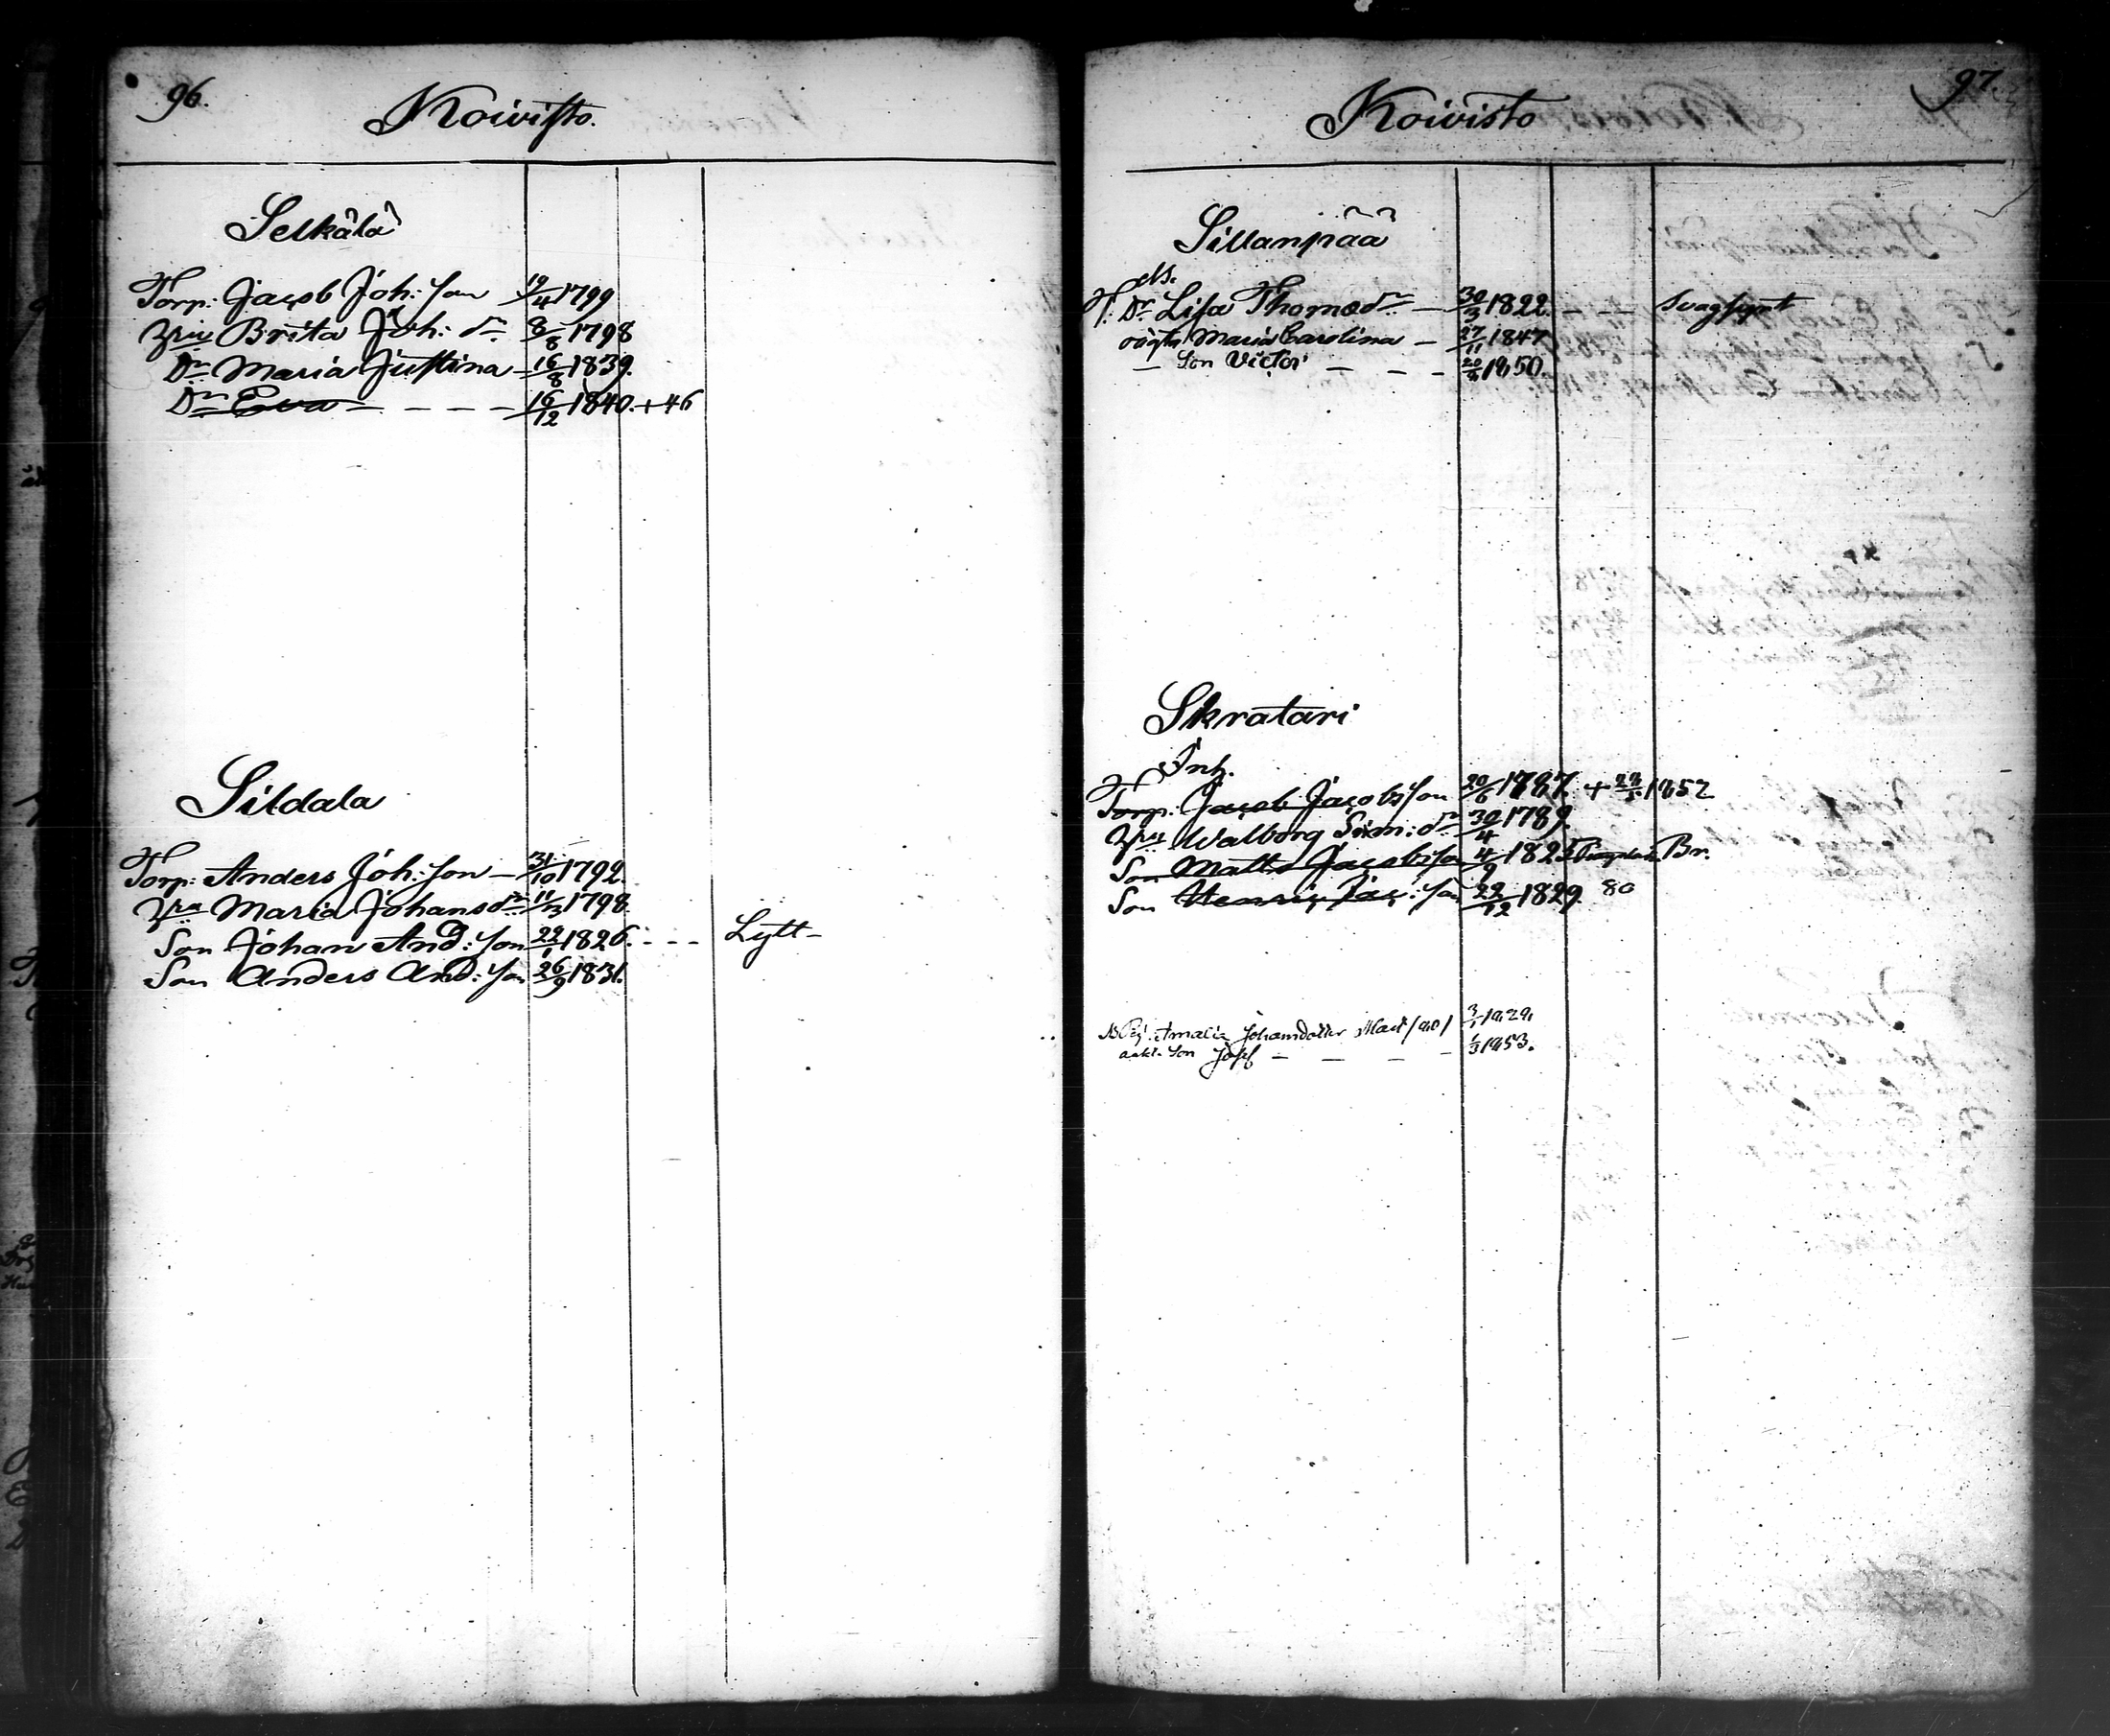 96.
Koivisto.
Selkälä
Torp: Jacob Joh: Son 19/4 1799
Hru Brita Joh: dr 8/8 1798
Dr Maria Justina 16/8 1839.
Dr Eva 16/12 1840. + 46
Sildala
Torp: Anders Joh: Son 31/10 1792.
Hru Maria Johans dr 11/3 1798
Son Johan And: Son 22/1 1826. Lytt
Son Anders And: Son 26/9 1831.
97.
Koivisto
Sillanpää
Dr Lisa Thomædr 30/3 1822.
oägta Maria Carolina 27/11 1847
Son Victor 1850.
Skratari
Inh.
Torp: Jacob Jacobsson 20/6 1787. + 1852
Hru Walborg Sim: dr 30/4 1789.
Son Matts Jacobsson 4/9 1825 Br.
Son Henric Jac: Son 22/12 1829. 80
Amalia Johansdotter 1829.
Son Josef 1853.